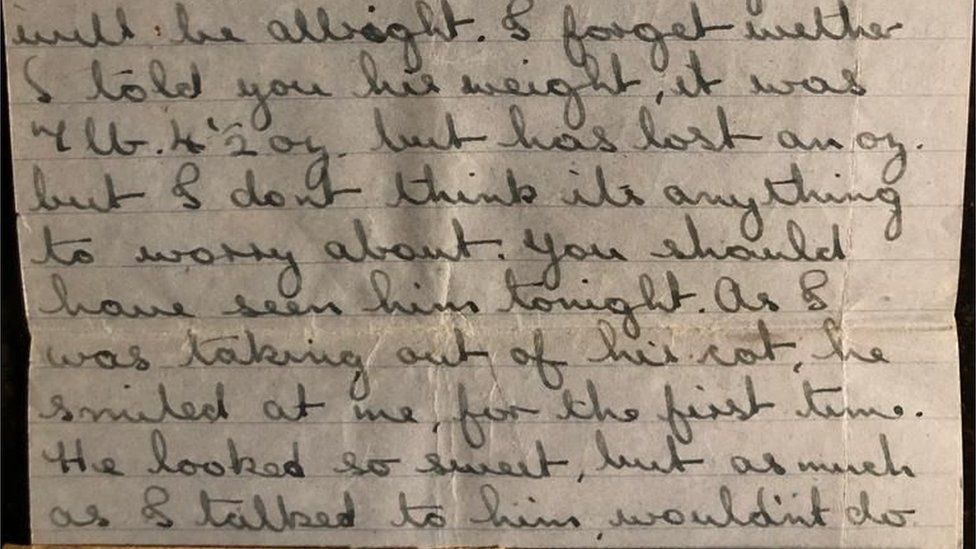 will be allright. I forget wether
I told you his weight, it was
7 lb. 4 1/2 oz. but has lost an oz.
but I don't think its anything
to worry about. You should
have seen him tonight. As I
was taking out of his cot, he
smiled at me, for the first time.
He looked so sweet, but as much
as I talked to him, wouldn't do